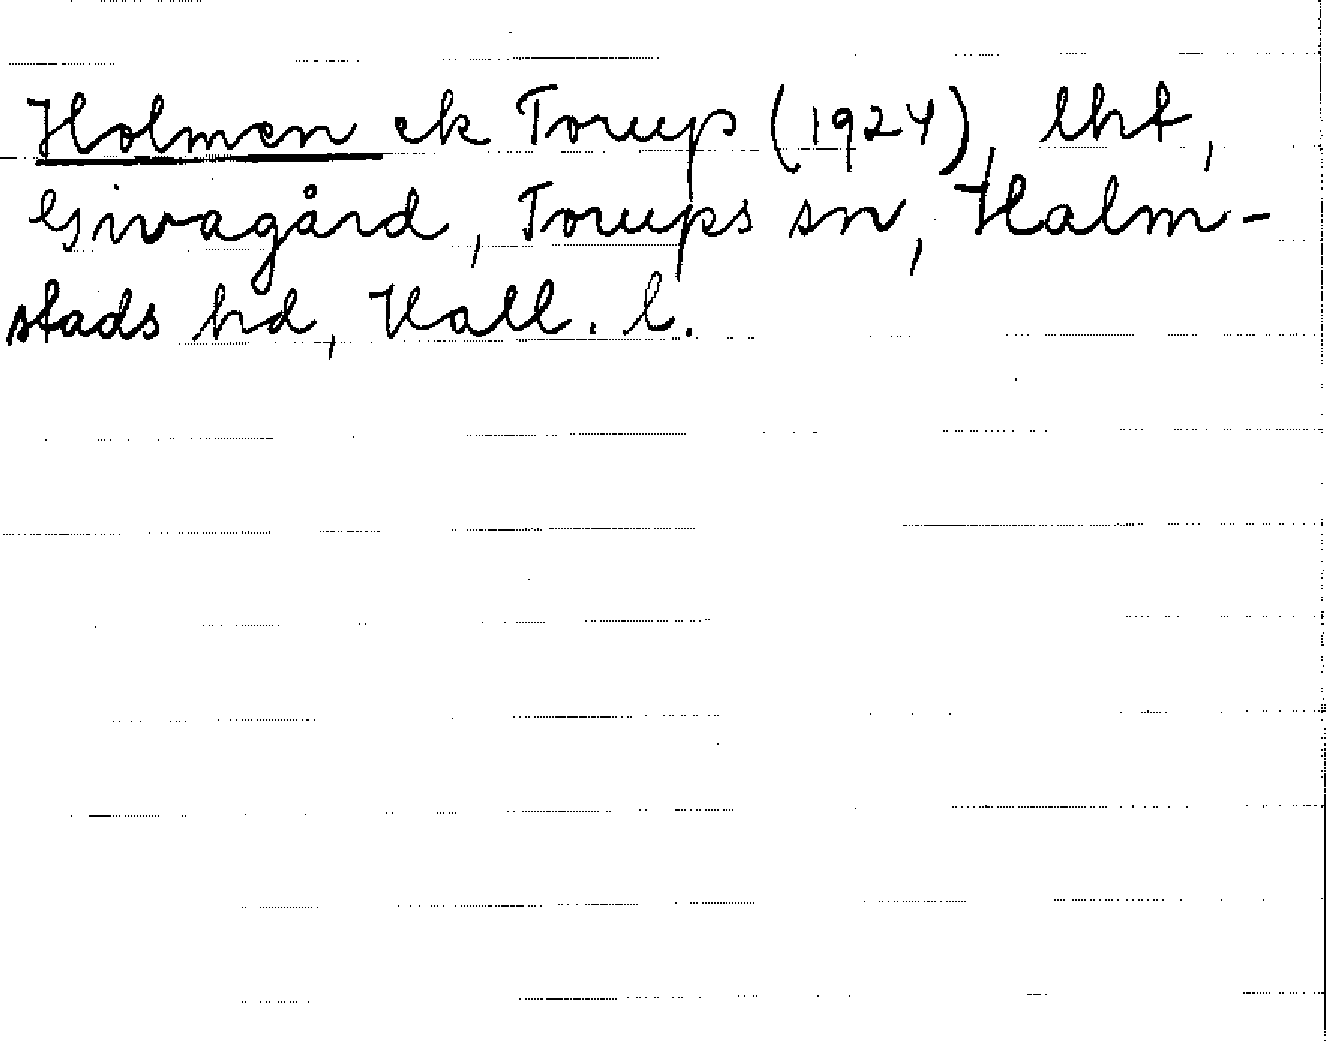 Holmen ek Torup (1924), lht,
Givagård, Torups sn, Halm-
stads hd, Hall. l.